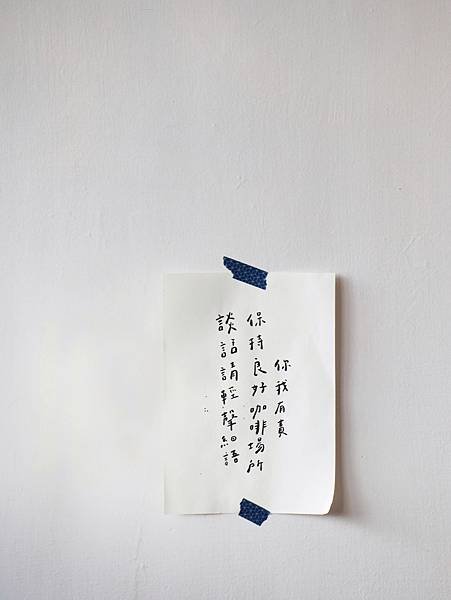 你我有責
保持良好咖啡場所
談話請輕聲細語